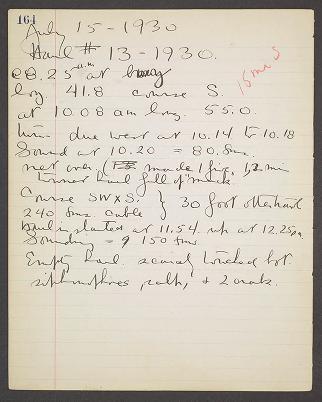 164
July 15 - 1930
Haul # 13 - 1930.
15 mi S
8.25 a.m. at buoy
log 41.8 course S.
at 10.08 am log. 55.0.
turn due west at 10.14 to 10.18
Sound at 10.20 = 80. fms.
net over. ( made 1 fix, 12 min
haul full of muck.
Course SW x S. } 30 foot otter haul
240 fms. cable
haul started at 11.54. up at 12.25 pm
Sounding = 150 fms
Empty haul scarcely touched bot.
siphonophores, salps, + 2